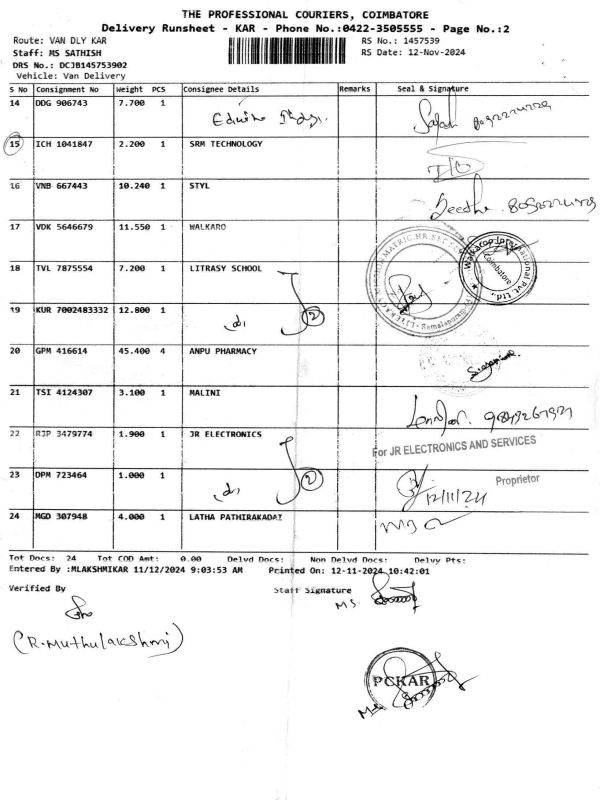 THE PROFESSIONAL COURIERS, COIMBATORE
Delivery Runsheet - KAR - Phone No.:0422-3505555 - Page No.:2
Route: VAN DLY KAR RS No.: 1457539
Staff: MS SATHISH RS Date: 12-Nov-2024
DRS No.: DCJB145753902
Vehicle: Van Delivery
S No Consignment No Weight PCS Consignee Details Remarks Seal & Signature
14 DDG 906743 7.700 1
15 ICH 1041847 2.200 1 SRM TECHNOLOGY
16 VNB 667443 10.240 1 STYL
17 VDK 5646679 11.550 1 WALKARO
18 TVL 7875554 7.200 1 LITRASY SCHOOL
19 KUR 7002483332 12.800 1 2
20 GPM 416614 45.400 4 ANPU PHARMACY
21 TSI 4124307 3.100 1 MALINI
22 RJP 3479774 1.900 1 JR ELECTRONICS For JR ELECTRONICS AND SERVICES
23 DPM 723464 1.000 1 2 12/11/24 Proprietor
24 MGD 307948 4.000 1 LATHA PATHIRAKADAI
Tot Docs: 24 Tot COD Amt: 0.00 Delvd Docs: Non Delvd Docs: Delvy Pts:
Entered By :MLAKSHMIKAR 11/12/2024 9:03:53 AM Printed On: 12-11-2024 10:42:01
Verified By Staff Signature
M.S.
(R.Muthulakshmi)
PCKAR
M.S.